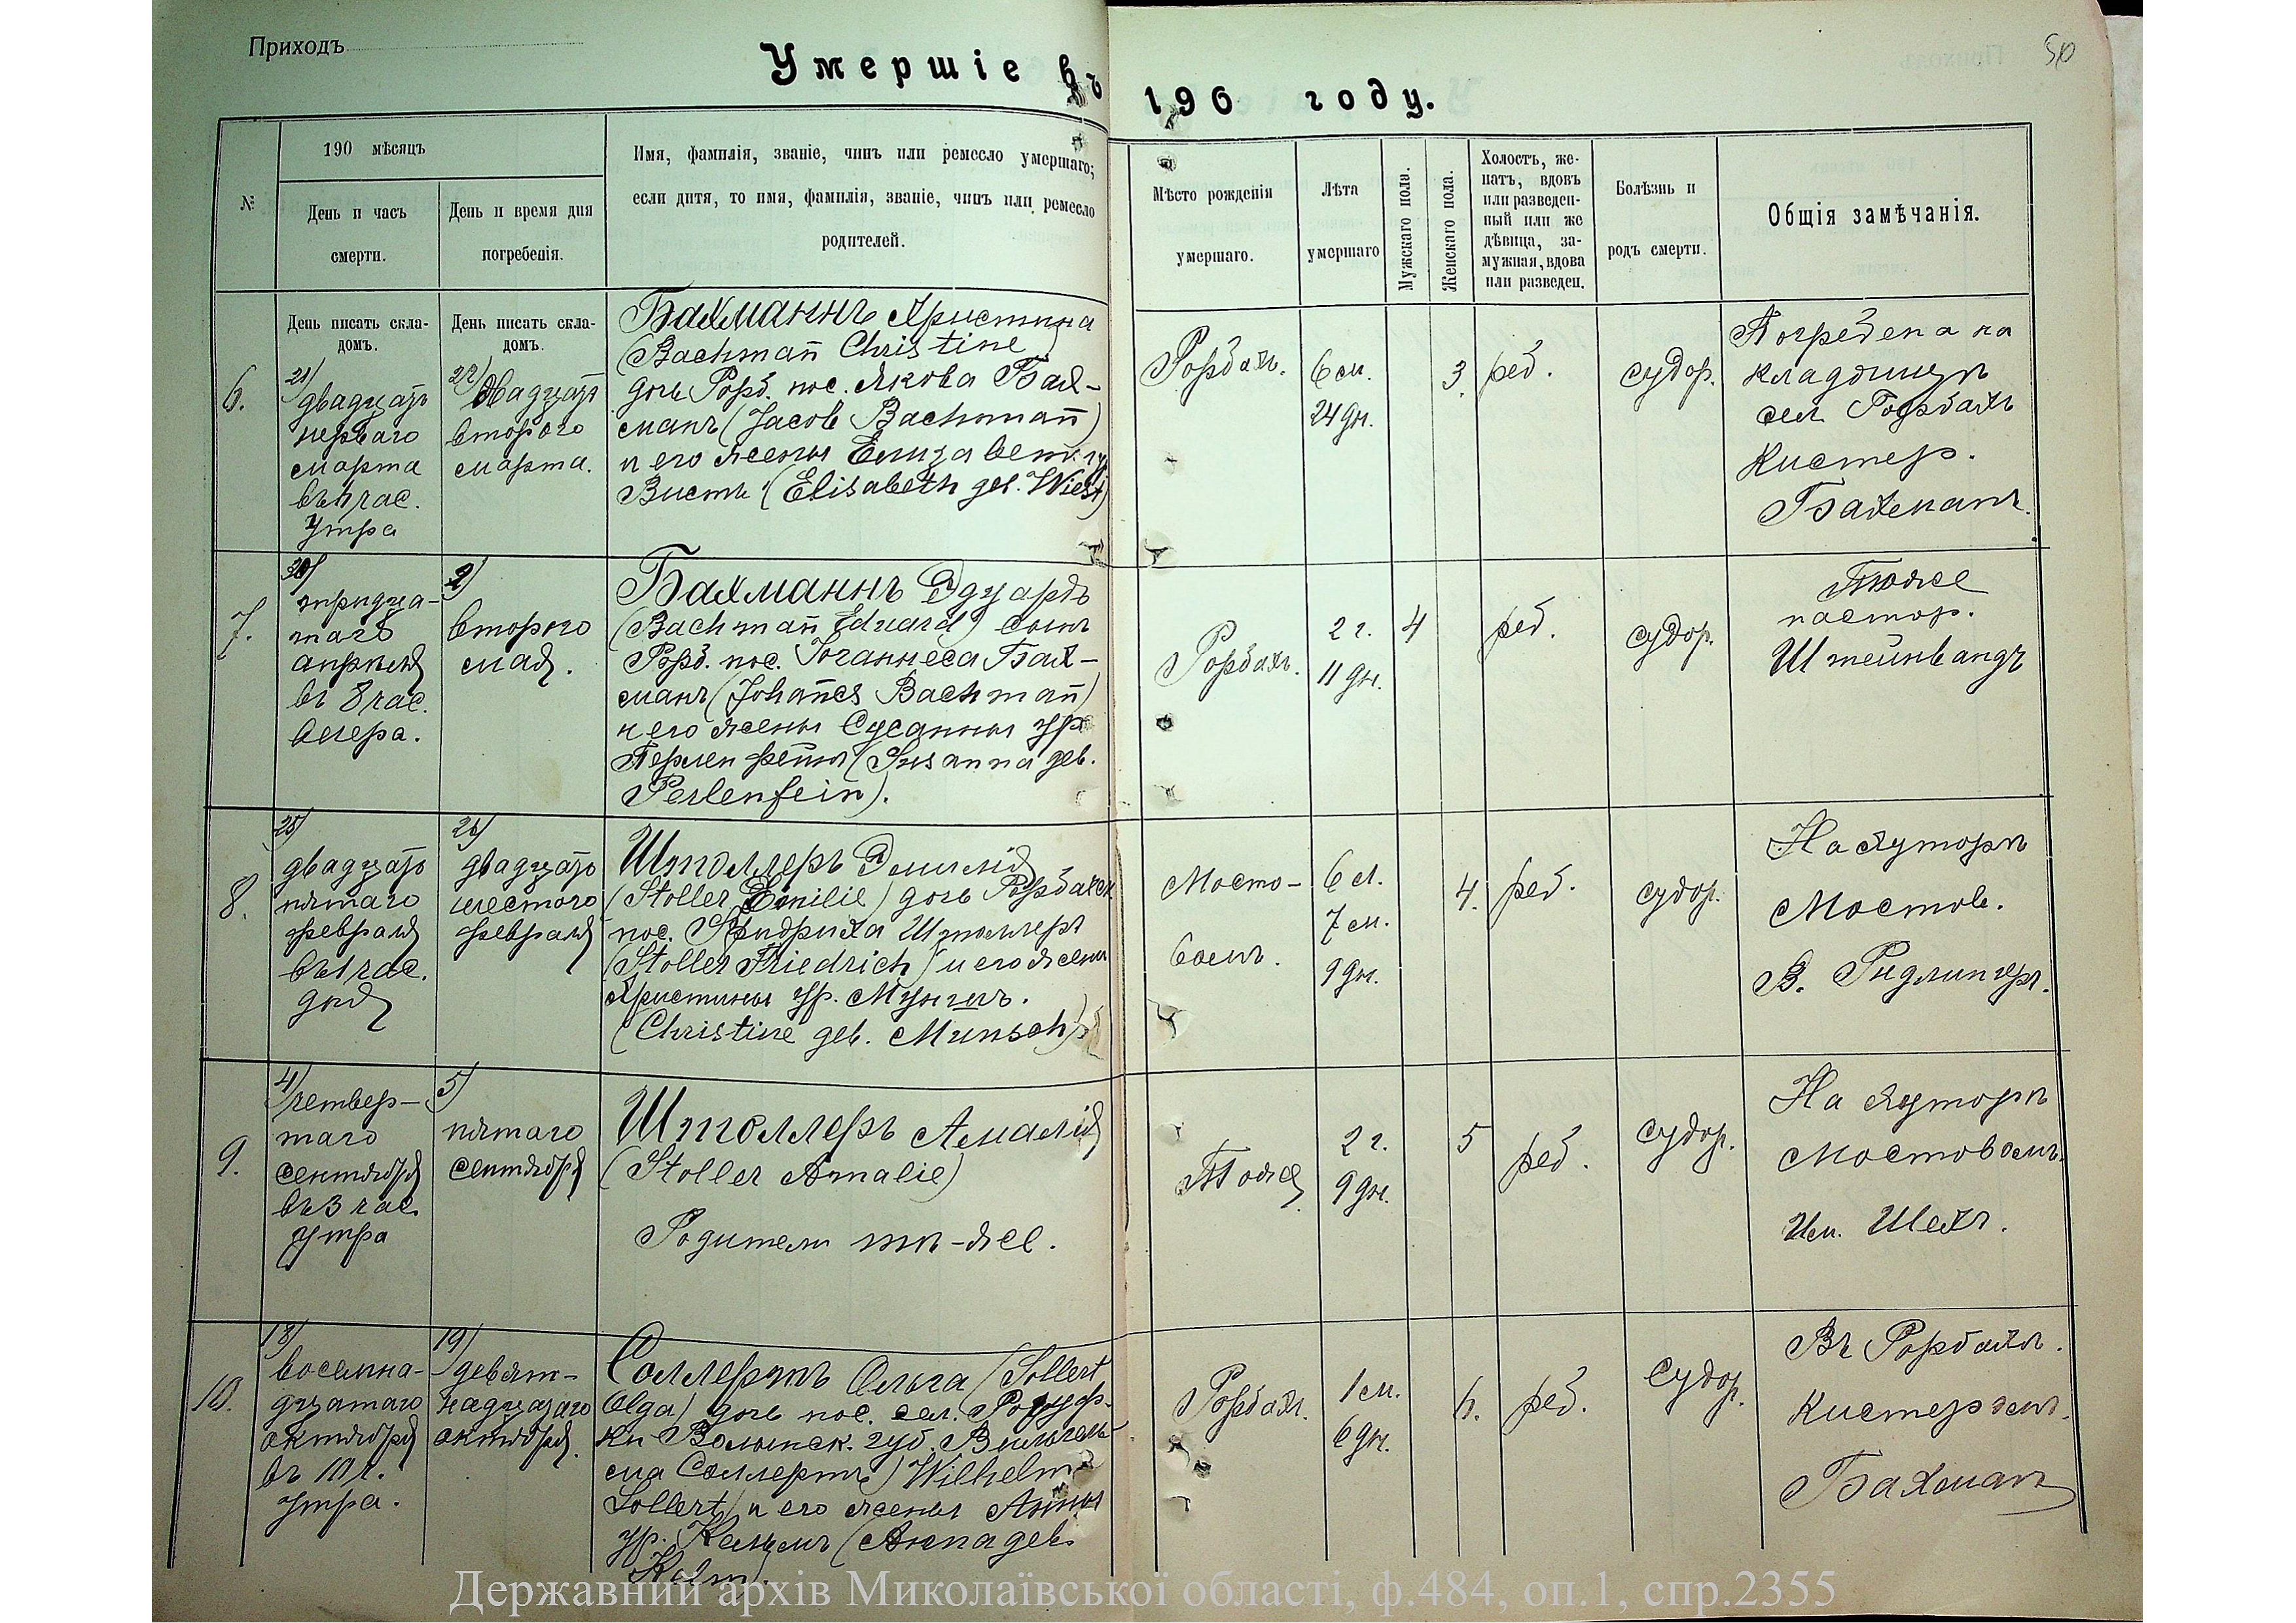 Приходъ
50
Умершіе въ 190 году.
№
190 мѣсяцъ
День и часъ
смерти.
День и время дня
погребенія.
Имя, фамилія, званіе, чинъ или ремесло умершаго;
если дитя, то имя, фамилія, званіе, чинъ или ремесло
родителей.
Мѣсто рожденія
умершаго.
Лѣта
умершаго
Мужскаго пола.
Женскаго пола.
Холостъ, же-
натъ, вдовъ
или разведен-
ный или же
дѣвица, за-
мужная, вдова
или развед.
Болѣзнь и
родъ смерти.
Общія замѣчанія.
6.
День писать скла-
домъ.
21)
двадцать
перваго
марта
утра
День писать скла-
домъ.
22) двадцать
второго
марта.
Бахманнъ Христина
(Bachman̄ Christine)
дочь Рорб. пос. Якова Бах-
манъ (Jacob Bachman̄)
и его жены Елизаветы
Вистъ (Elisabeth geb. Wiest)
Рорбахъ.
6 м.
24 дн.
3.
реб.
судор.
Погребена на
кладбищѣ
сел. Рорбахъ
Кистер.
Бахманъ.
7.
30)
тридца-
таго
апрѣля
въ 8 час.
вечера.
2)
второго
мая.
Бахманнъ Эдуардъ
(Bachman̄ Eduard) сынъ
Рорб. пос. Іоганнеса Бах-
манъ (Johan̄es Bachman̄)
и его жены Сусанны ур.
Перленфейнъ (Susanna geb.
Perlenfein).
Рорбахъ.
2 г.
11 дн.
4
реб.
судор.
Тоже
пастор.
Штейнвандъ
8.
25)
двадцать
пятаго
февраля
въ 1 час.
дня
26)
двадцать
шестого
февраля
Штоллеръ Эмилія
(Stoller Emilie) дочь Рорбахск.
пос. Фридриха Штоллеръ
(Stoller Friedrich) и его жены
Христины ур. Муншъ.
(Christine geb. Munsch)
Мосто-
вомъ.
6 л.
7 м.
9 дн.
4.
реб.
судор.
На хуторѣ
Мостов.
В. Ридлингеръ.
9.
4)
четвер-
таго
сентября
въ 3 час.
утра
5)
пятаго
сентября
Штоллеръ Амалія
(Stoller Amalie)
Родители тѣ-же.
Тоже
2 г.
9 дн.
5
реб.
судор.
На хуторѣ
Мостовомъ.
Им. Шехъ.
10.
18)
восемна-
дцатаго
октября
въ 10 ч.
утра.
19)
девят-
надцатаго
октября.
Соллертъ Ольга (Sollert
Olga) дочь пос. сел.
Волынск. губ. Вильгель-
ма Соллертъ) Wilhelm
Sollert) и его жены Анны
ур. (Anna geb.
Рорбахъ.
1 м.
6 дн.
6.
реб.
судор.
Въ Рорбахѣ.
Кистеромъ.
Бахманъ
Державний архів Миколаївської області, ф.484, оп.1, спр.2355